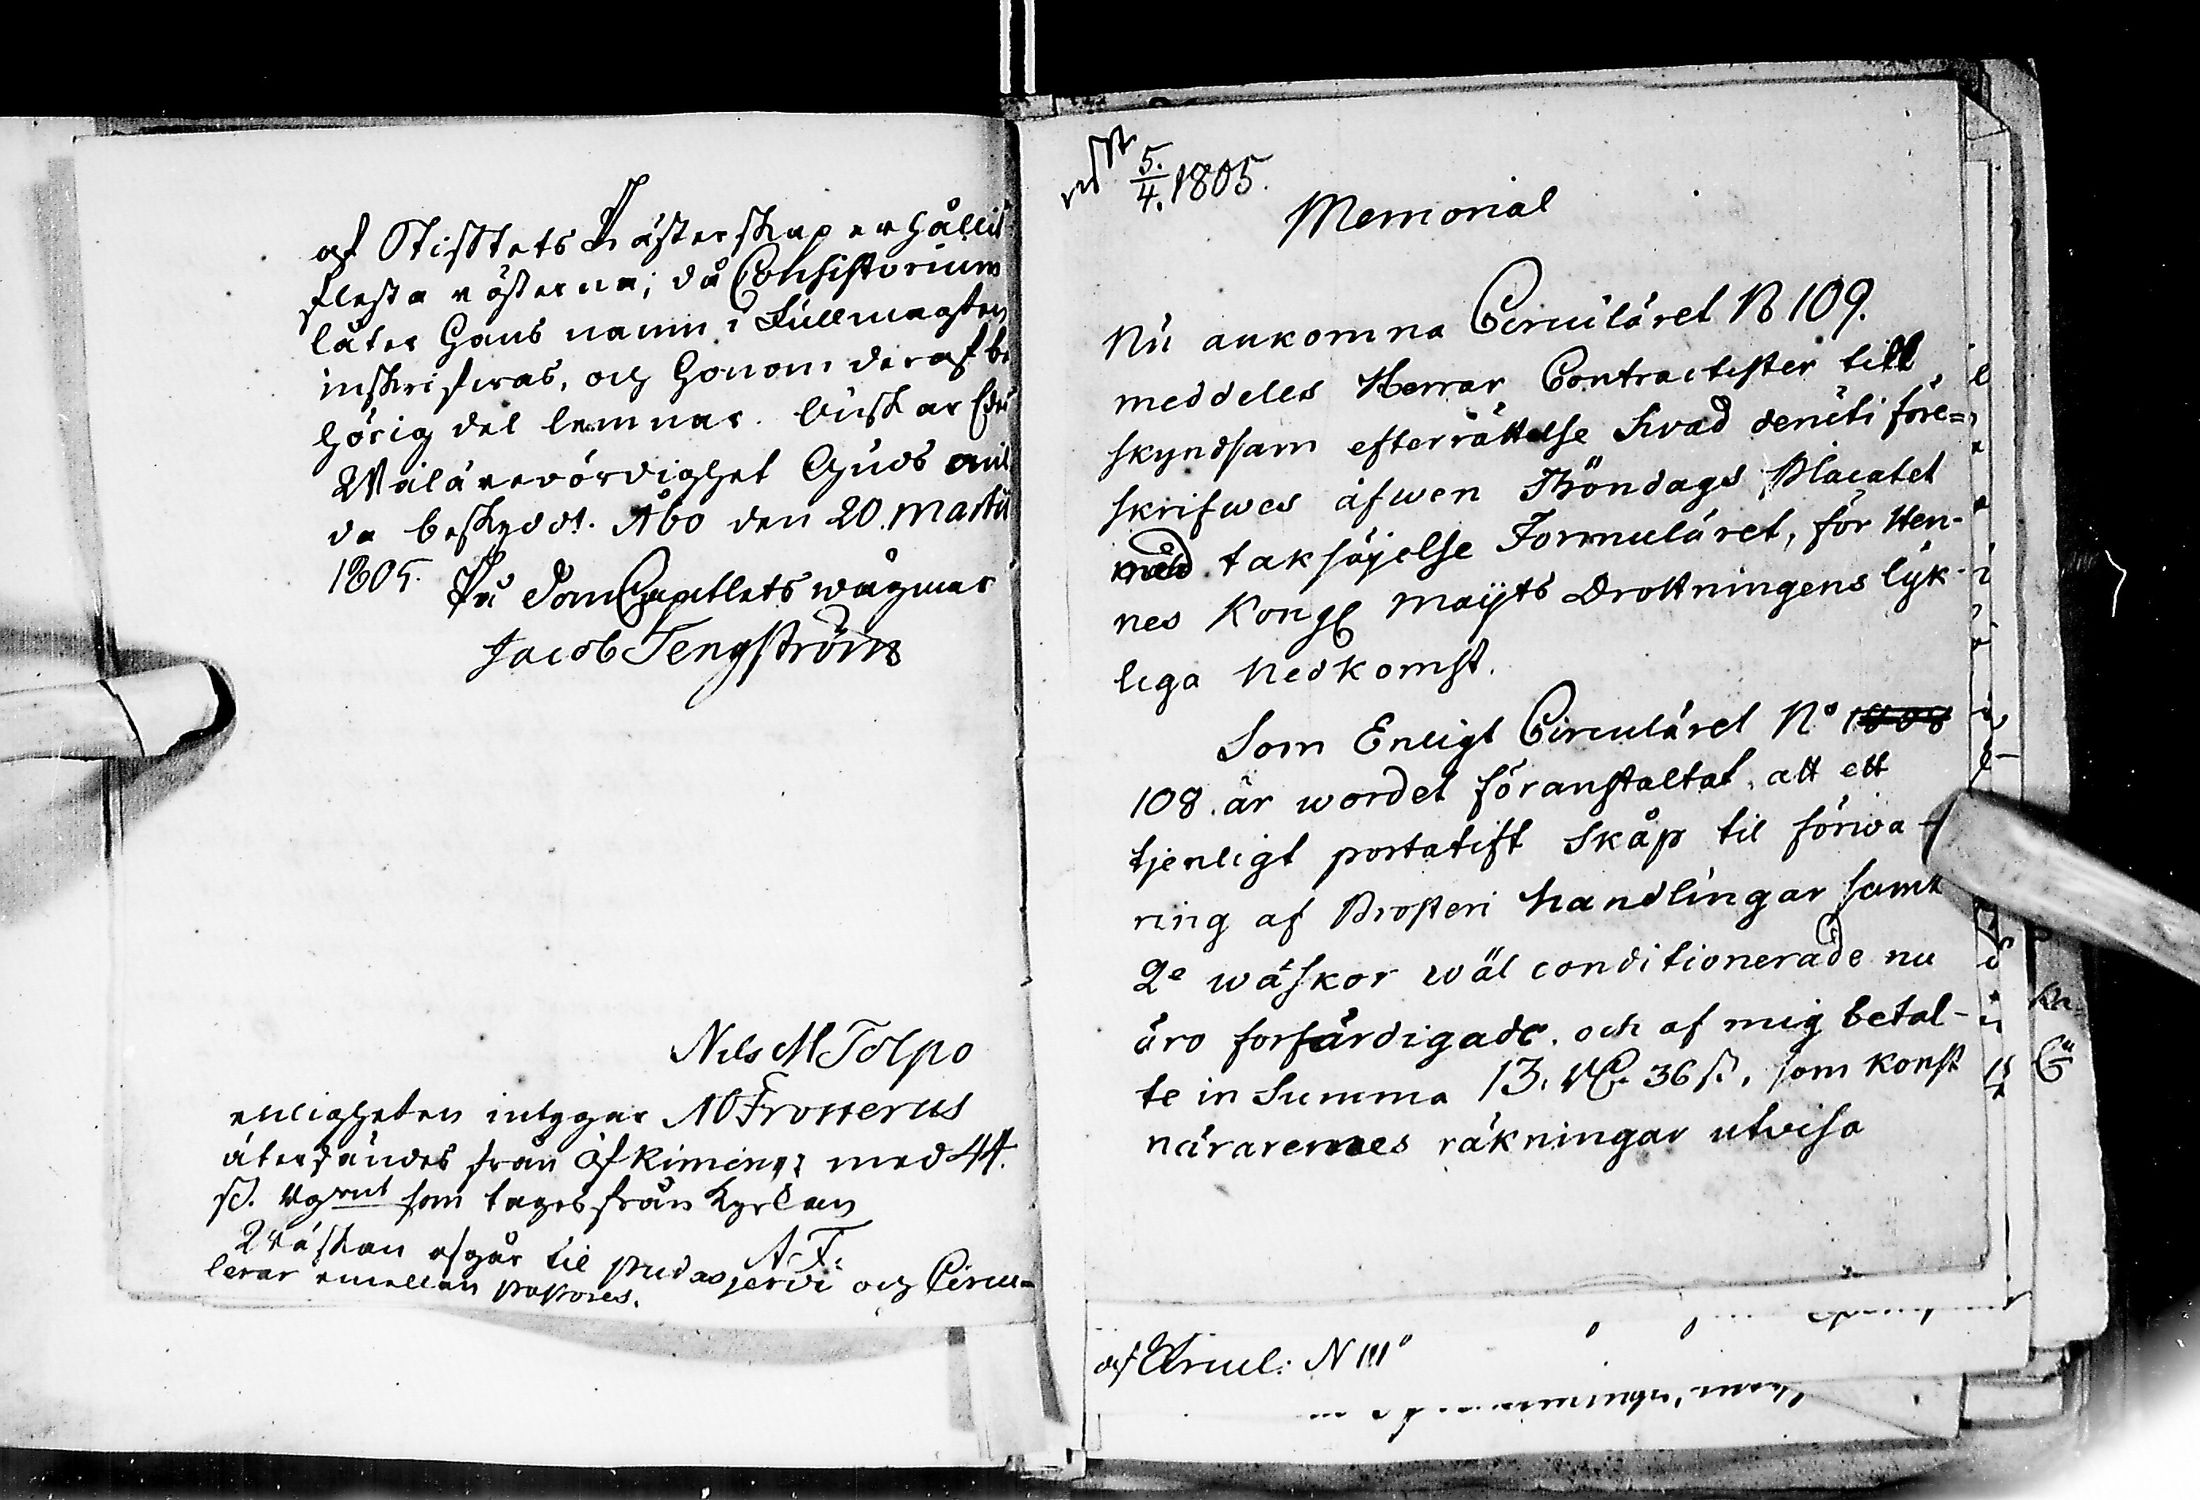 af Stiftets Prästerskap erhållit
flesta rösterna; då Consistorium
låter Hans namn i Fullmagten
inskrifwas, och Honom deraf be
hörig del lemnas. Önskar Eder
Wälärevördighet Guds mil
da beskydd. Åbo den 20 Martii
1805.
På DomCapitlets wägnar
Jacob Tengström
Nils M Tolpo
enligheten intygar A Frosterus
återsändes från öfkiminge med 44
som tages från Kyrkan
Wäskan afgår til Pudasjervi och Circu-
A. F.
lerar emellan pastores.
5./4. 1805.
Memorial
Nu ankomna Circuläret N 109.
meddeles Herrar Contractister till
skyndsam efterrättelse hvad deruti före=
skrifwes äfwen Böndags Placatet
med taksäjelse Formuläret, för Hen-
nes Kongl Maÿts Drottningens lyk-
liga Nedkomst.
Som Enligt Circuläret No
108. är wordet föranstaltat, att ett
tjenligt portatift Skåp til förwa-
ring af Prosteri handlingar samt
2e wäskor wäl conditionerade nu
äro forfärdigade. och af mig betal-
te in Summa 13. 36 s. som konst
närarenes räkningar utvisa
af Circul: N 111